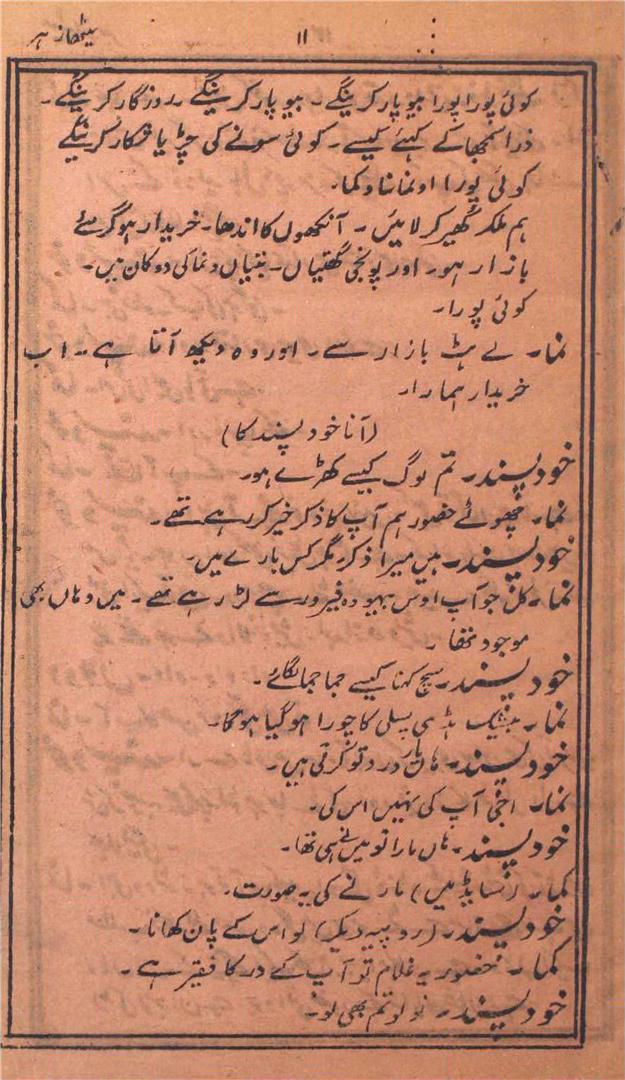 میٹھا زہر
۱۱
کوئی پورا پورا بیوپار کرینگے۔ بیوپار کرینگے۔ روزگار کرینگے۔
ذرا سمجھا کے کہئے کیسے۔ کوئی سونے کی چڑیا شکار کرینگے
کوئی پورا
ہم ملکر گھیر کر لائیں۔ آنکھوں کا اندھا۔ خریدار ہو گر مئے
بازار ہو۔ اور پونجی گھتیاں۔ بتیاں دنما کی دوکان ہیں۔
کوئی پورا۔
نما۔ لے ہٹ بازار سے۔ اور وہ دیکھ آتا ہے۔ اب
خریدار ہمارا۔
(آنا خود پسند کا)
خود پسند۔ تم لوگ کیسے کھڑے ہو۔
نما۔ چھوٹے حضور ہم آپ کا ذکر خیر کر رہے تھے۔
خود پسند۔ ہیں میرا ذکر مگر کس بارے میں۔
نما۔ کل جو آپ اوس بیہودہ فیروز سے لڑ رہے تھے۔ میں وہاں بھی
موجود تھا۔
خود پسند۔ سچ کہنا کیسے جما جما لگائے۔
نما۔ بیشک ہڈی پسلی کا چورا ہو گیا ہو گا۔
خود پسند۔ ہاں ہاں درد تو کرتی ہیں۔
نما۔ اجی آپ کی نہیں اس کی۔
خود پسند۔ ہاں مارا تو میں نے ہی تھا۔
کما۔ (سائڈ میں) مارنے کی یہ صورت۔
خود پسند۔ (روپیہ دیکر) لو اس کے پان کھانا۔
کما۔ حضور یہ غلام تو آپ کے در کا فقیر ہے۔
خود پسند۔ تو لو تم بھی لو۔